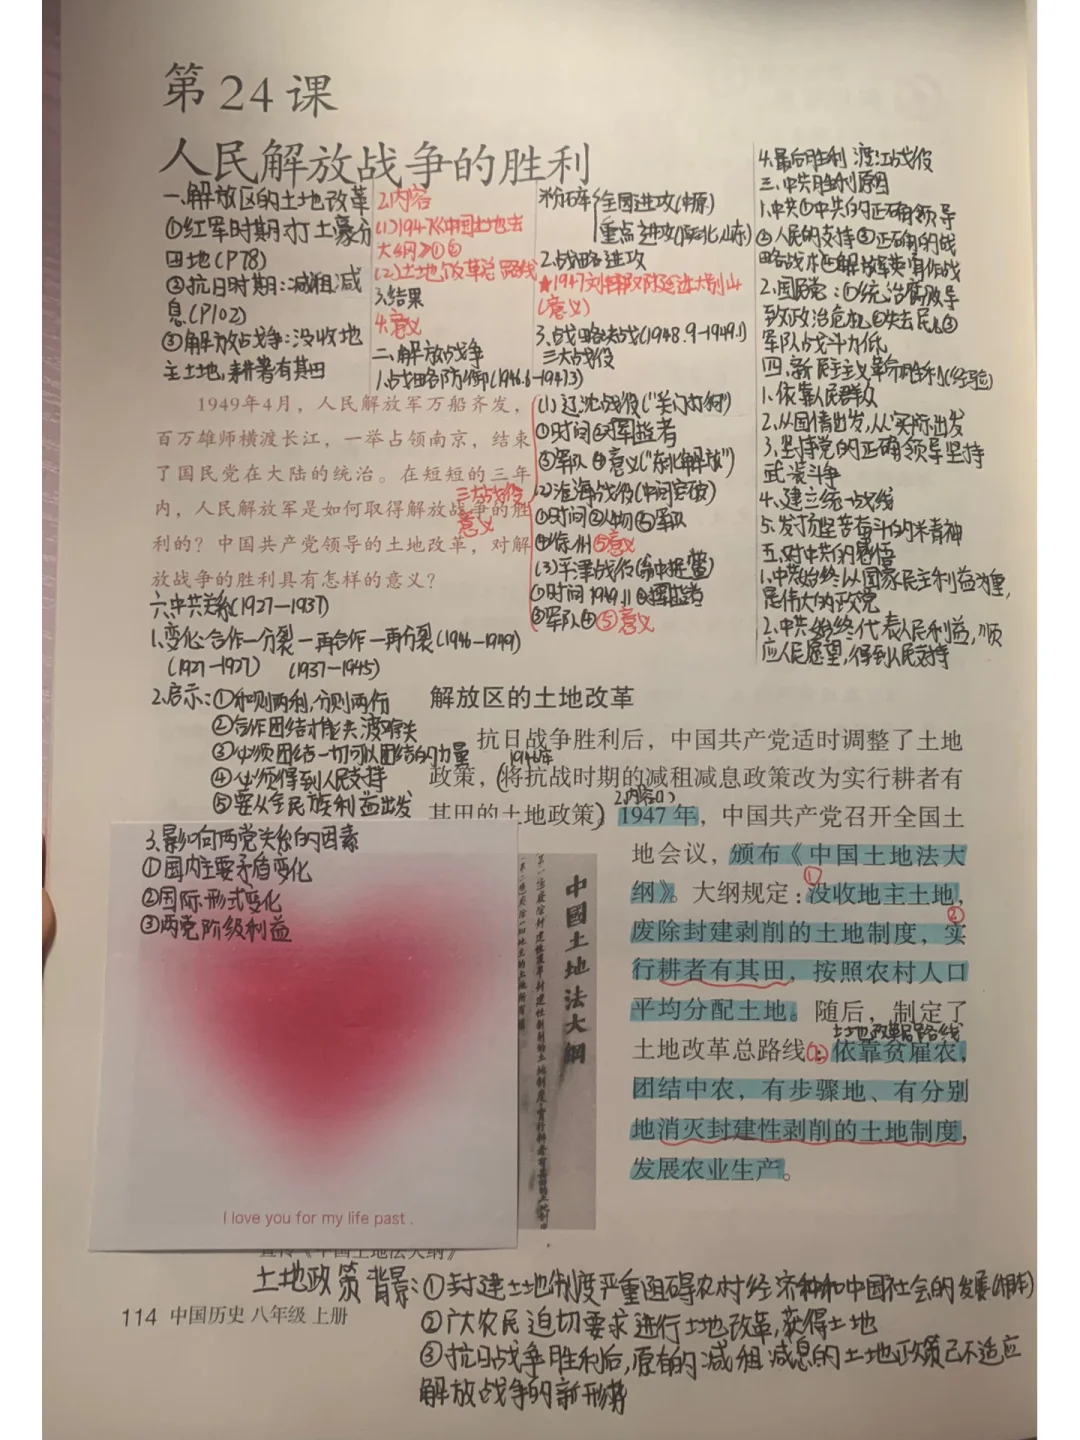 第 24 课
人民解放战争的胜利
一.解放区的土地改革
①红军时期:打土豪分
田地(P78)
②抗日时期:减租减
息(P102)
③解放战争:没收地
主土地,耕者有其田
2.内容
(1)1947《中国土地法
大纲》①②
(2)土地改革总路线
3.结果
4.意义
二.解放战争
1.战略防御(1946.6-1947.3)
粉碎 全面进攻(中原)
重点进攻(陕北,山东)
2.战略进攻
★1947刘邓挺进大别山
(意义)
3.战略决战(1948.9-1949.1)
三大战役
(1)辽沈战役("关门打狗")
①时间②指挥者
③军队④意义("东北解放")
(2)淮海战役(中间突破)
①时间②人物③军队
④徐州⑤意义
(3)平津战役
①时间 1949.1 ②指挥者
③军队④⑤意义
三大战役
意义
4.最后胜利 渡江战役
三.中共胜利原因
1.中共①中共的正确领导
②人民的支持③正确的战
略战术④解放军英勇作战
2.国民党:①统治腐败导
致政治危机②失去民心③
军队战斗力低
四.新民主主义革命胜利(经验)
1.依靠人民群众
2.从国情出发,从实际出发
3.坚持党的正确领导坚持
武装斗争
4.建立统一战线
5.发扬艰苦奋斗的精神
五.对中共的感悟
1.中共始终以国家民主利益为重,
是伟大的政党
2.中共始终代表人民利益,顺
应人民愿望,得到人民支持
1949年4月，人民解放军万船齐发，
百万雄师横渡长江，一举占领南京，结束
了国民党在大陆的统治。在短短的三年
内，人民解放军是如何取得解放战争的胜
利的？中国共产党领导的土地改革，对解
放战争的胜利具有怎样的意义？
六.中共关系(1927—1937)
1.变化:合作—分裂—再合作—再分裂(1946—1949)
(1927—1927) (1937—1945)
2.启示:①和则两利,分则两行
②合作团结才能共渡难关
③必须团结一切可以团结的力量
④必须得到人民支持
⑤要从全民族利益出发
3.影响两党关系的因素
①国内主要矛盾变化
②国际形式变化
③两党阶级利益
I love you for my life past .
解放区的土地改革
抗日战争胜利后，中国共产党适时调整了土地
1946年
政策，(将抗战时期的减租减息政策改为实行耕者有
2.内容(1)
其田的土地政策)1947年，中国共产党召开全国土
地会议，颁布《中国土地法大
纲》。大纲规定：①没收地主土地，
②废除封建剥削的土地制度，实
行耕者有其田，按照农村人口
平均分配土地。随后，制定了
土地改革总路线
土地改革总路线：依靠贫雇农，
团结中农，有步骤地、有分别
地消灭封建性剥削的土地制度，
发展农业生产。
中國土地法大綱
宣传《中国土地法大纲》
土地政策背景:①封建土地制度严重阻碍农村经济和中国社会的发展(根本)
②广大农民迫切要求进行土地改革,获得土地
③抗日战争胜利后,原有的减租减息的土地政策已不适应
解放战争的新形势
114 中国历史 八年级 上册